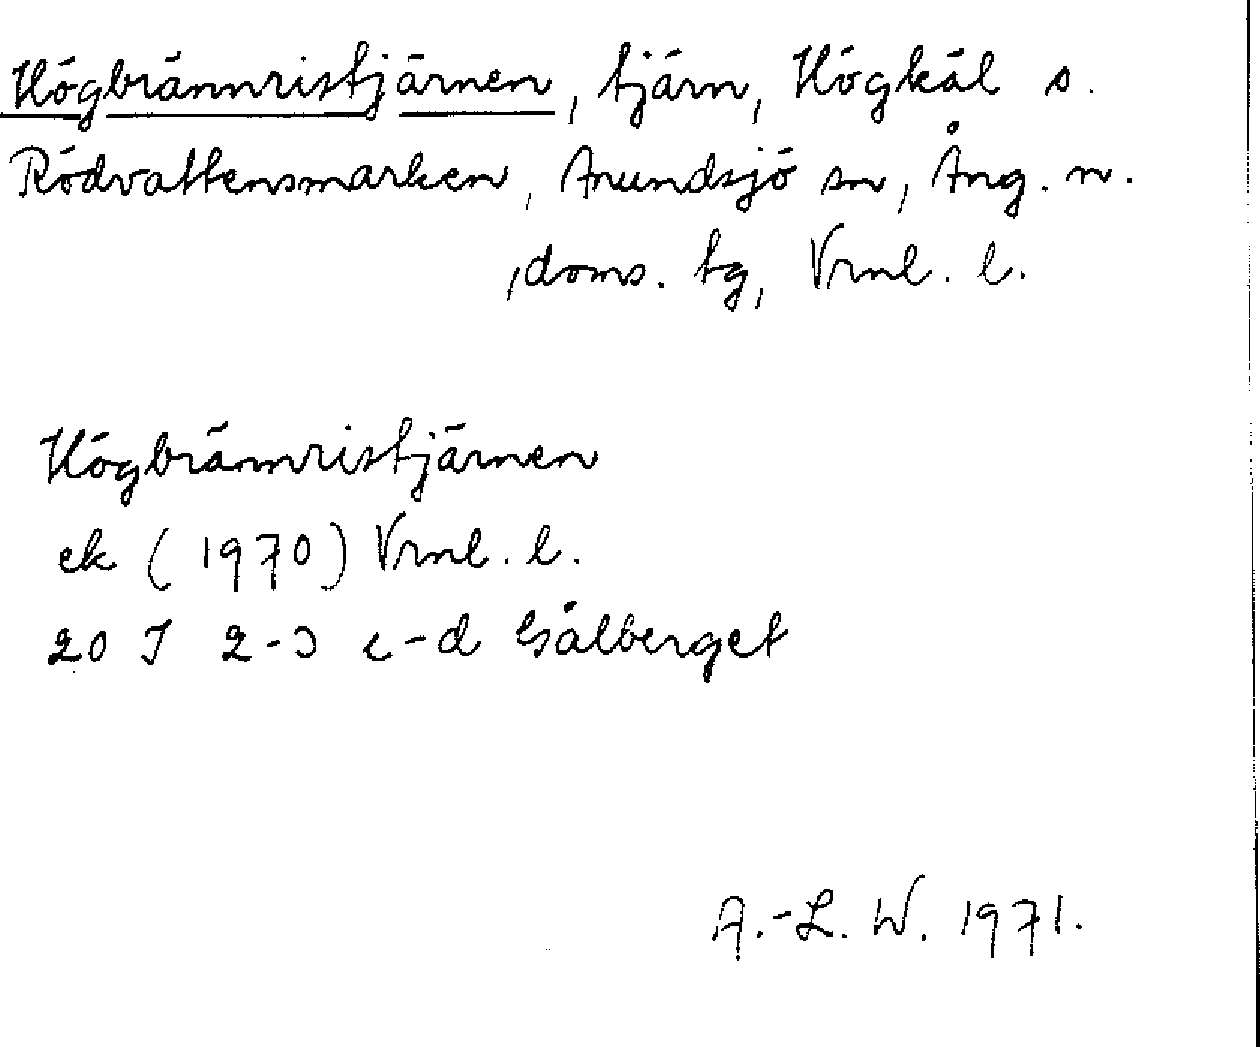 Högbrännristjärnen, tjärn, Högkål s.
Rödvattensmarken, Anundsjö sn, Ång. n.
, doms. tg, Vrml. l.
Högbrännristjärnen
ek (1970) Vrml. l.
20 J 2-3 c-d Gålberget
A.-L. W. 1971.